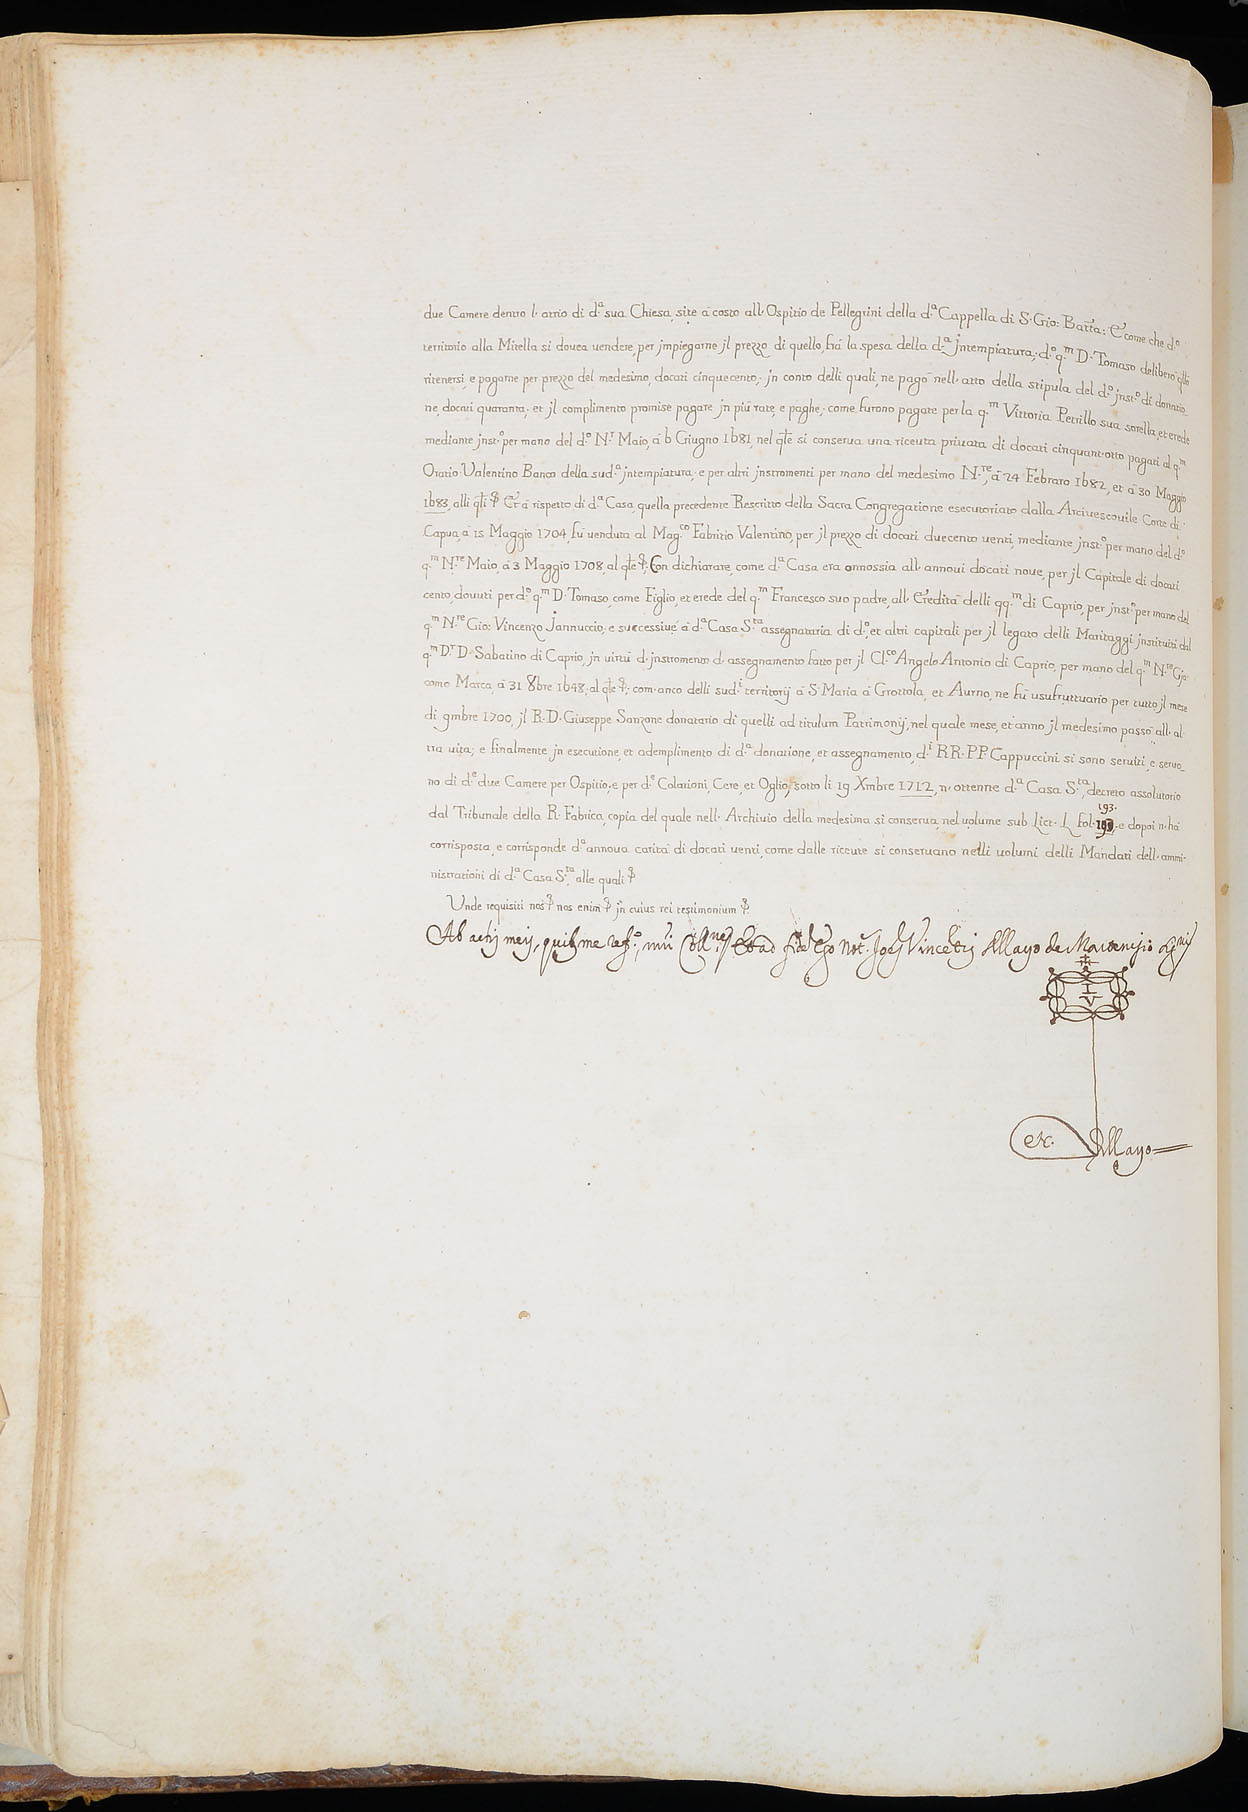 due Camere dentro l'atrio di d.ª sua Chiesa, site à costo all'Ospitio de Pellegrini della d.ª Cappella di S. Gio: Batta: Et come che d.º
territorio alla Mirella si douea uendere, per jmpiegarne jl prezzo di quello, frà la spesa della d.ª jntempiatura; d.º q.m D. Tomaso deliberò
ritenersi, e pagarne per prezzo del medesimo, docati cinquecento; jn conto delli quali, ne pagò nell'atto della stipula del d.º jnst.º di donatio_
ne, docati quaranta; et jl complimento promise pagare jn più rate, e paghe; come furono pagate per la q.m Vittoria Petrillo sua sorella, et erede
mediante jnst.º per mano del d.º N.r Maio, à 6 Giugno 1681, nel qle si conserua una riceuta priuata di docati cinquant'otto pagati al q.m
Oratio Valentino Banco della sud.ª jntempiatura; e per altri jnstromenti per mano del medesimo N.re, à 24 Febraro 1682, et à 30 Maggio
1683, alli qli &. Et à rispetto di d.ª Casa, quella precedente Rescritto della Sacra Congregatione esecutoriato dalla Arciuescouile Corte di
Capua, à 15 Maggio 1704, fù venduta al Mag.co Fabritio Valentino, per jl prezzo di docati duecento uenti, mediante jnst.º per mano del d.º
q.m N.re Maio, à 3 Maggio 1708, al qle &. Con dichiarare, come d.ª Casa era annossia all'annoui docati noue, per jl Capitale di docati
cento, douuti per d.º q.m D. Tomaso, come Figlio, et erede del q.m Francesco suo padre, all'Eredità delli qq.m di Caprio, per jnst.º per mano del
q.m N.re Gio: Vincenzo Jannuccio; e successiue à d.ª Casa S.ta assegnataria di d.º, et altri capitali per jl legato delli Maritaggi jnstituiti dal
q.m D.r D. Sabatino di Caprio, jn uirtù d'jnstromento d'assegnamento fatto per jl Cl.co Angelo Antonio di Caprio, per mano del q.m N.re Gia-
como Marca, à 31 8bre 1648, al qle &; com'anco delli sud.i territorij à S. Maria à Grottola, et Aurno, ne fù usufruttuario per tutto jl mese
di 9mbre 1700, jl R. D. Giuseppe Sanzone donatario di quelli ad titulum Patrimonij, nel quale mese, et anno jl medesimo passò all'al
tra uita; e finalmente jn esecutione, et adempimento di d.ª donatione, et assegnamento, d.i RR. PP. Cappuccini si sono seruiti, e seruo_
no di d.e due Camere per Ospitio, e per d.e Colationi, Cere, et Oglio, sotto li 19 Xmbre 1712, n'ottenne d.ª Casa S.ta, decreto assolutorio
193.
dal Tribunale della R. Fabrica, copia del quale nell'Archiuio della medesima si conserua, nel uolume sub Litt. L fol. e dopoi n'hà
corrisposta, e corrisponde d.ª annoua carità di docati uenti, come dalle riceute si conseruano nelli uolumi delli Mandati dell'ammi-
nistrationi di d.ª Casa S.ta, alle quali &
Unde requisiti nos & nos enim & jn cuius rei testimonium &.
Ab actis meis, Et ad fid Ego Not. Joes Vincetis de Mayo de
I
V
etc. de Mayo